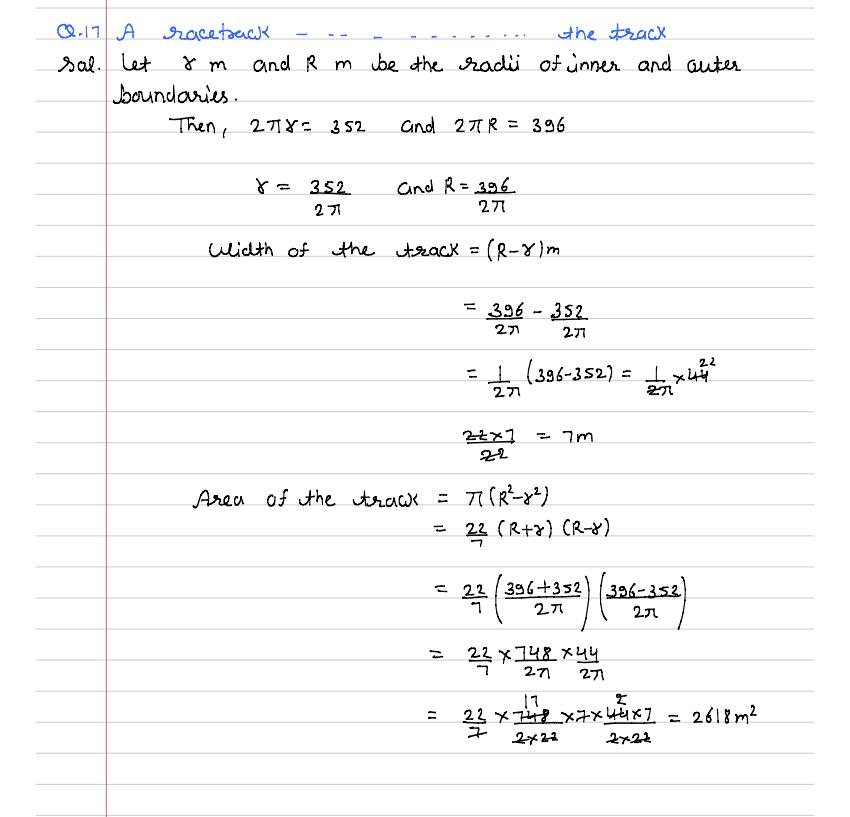 Q.17 A racetrack - -- - - - - - - .... the track
Sol. Let r m and R m be the radii of inner and outer
boundaries.
Then, 2πr = 352 and 2πR = 396
r = 352/2π and R = 396/2π
Width of the track = (R-r)m
= 396/2π - 352/2π
= 1/2π (396-352) = 1/2π × 44 22
22×7/22 = 7m
Area of the track = π(R²-r²)
= 22/7 (R+r) (R-r)
= 22/7 (396+352/2π) (396-352/2π)
= 22/7 × 748/2π × 44/2π
= 22/7 × 17 748/2×22 × 7 × 2 44×7/2×22 = 2618m²